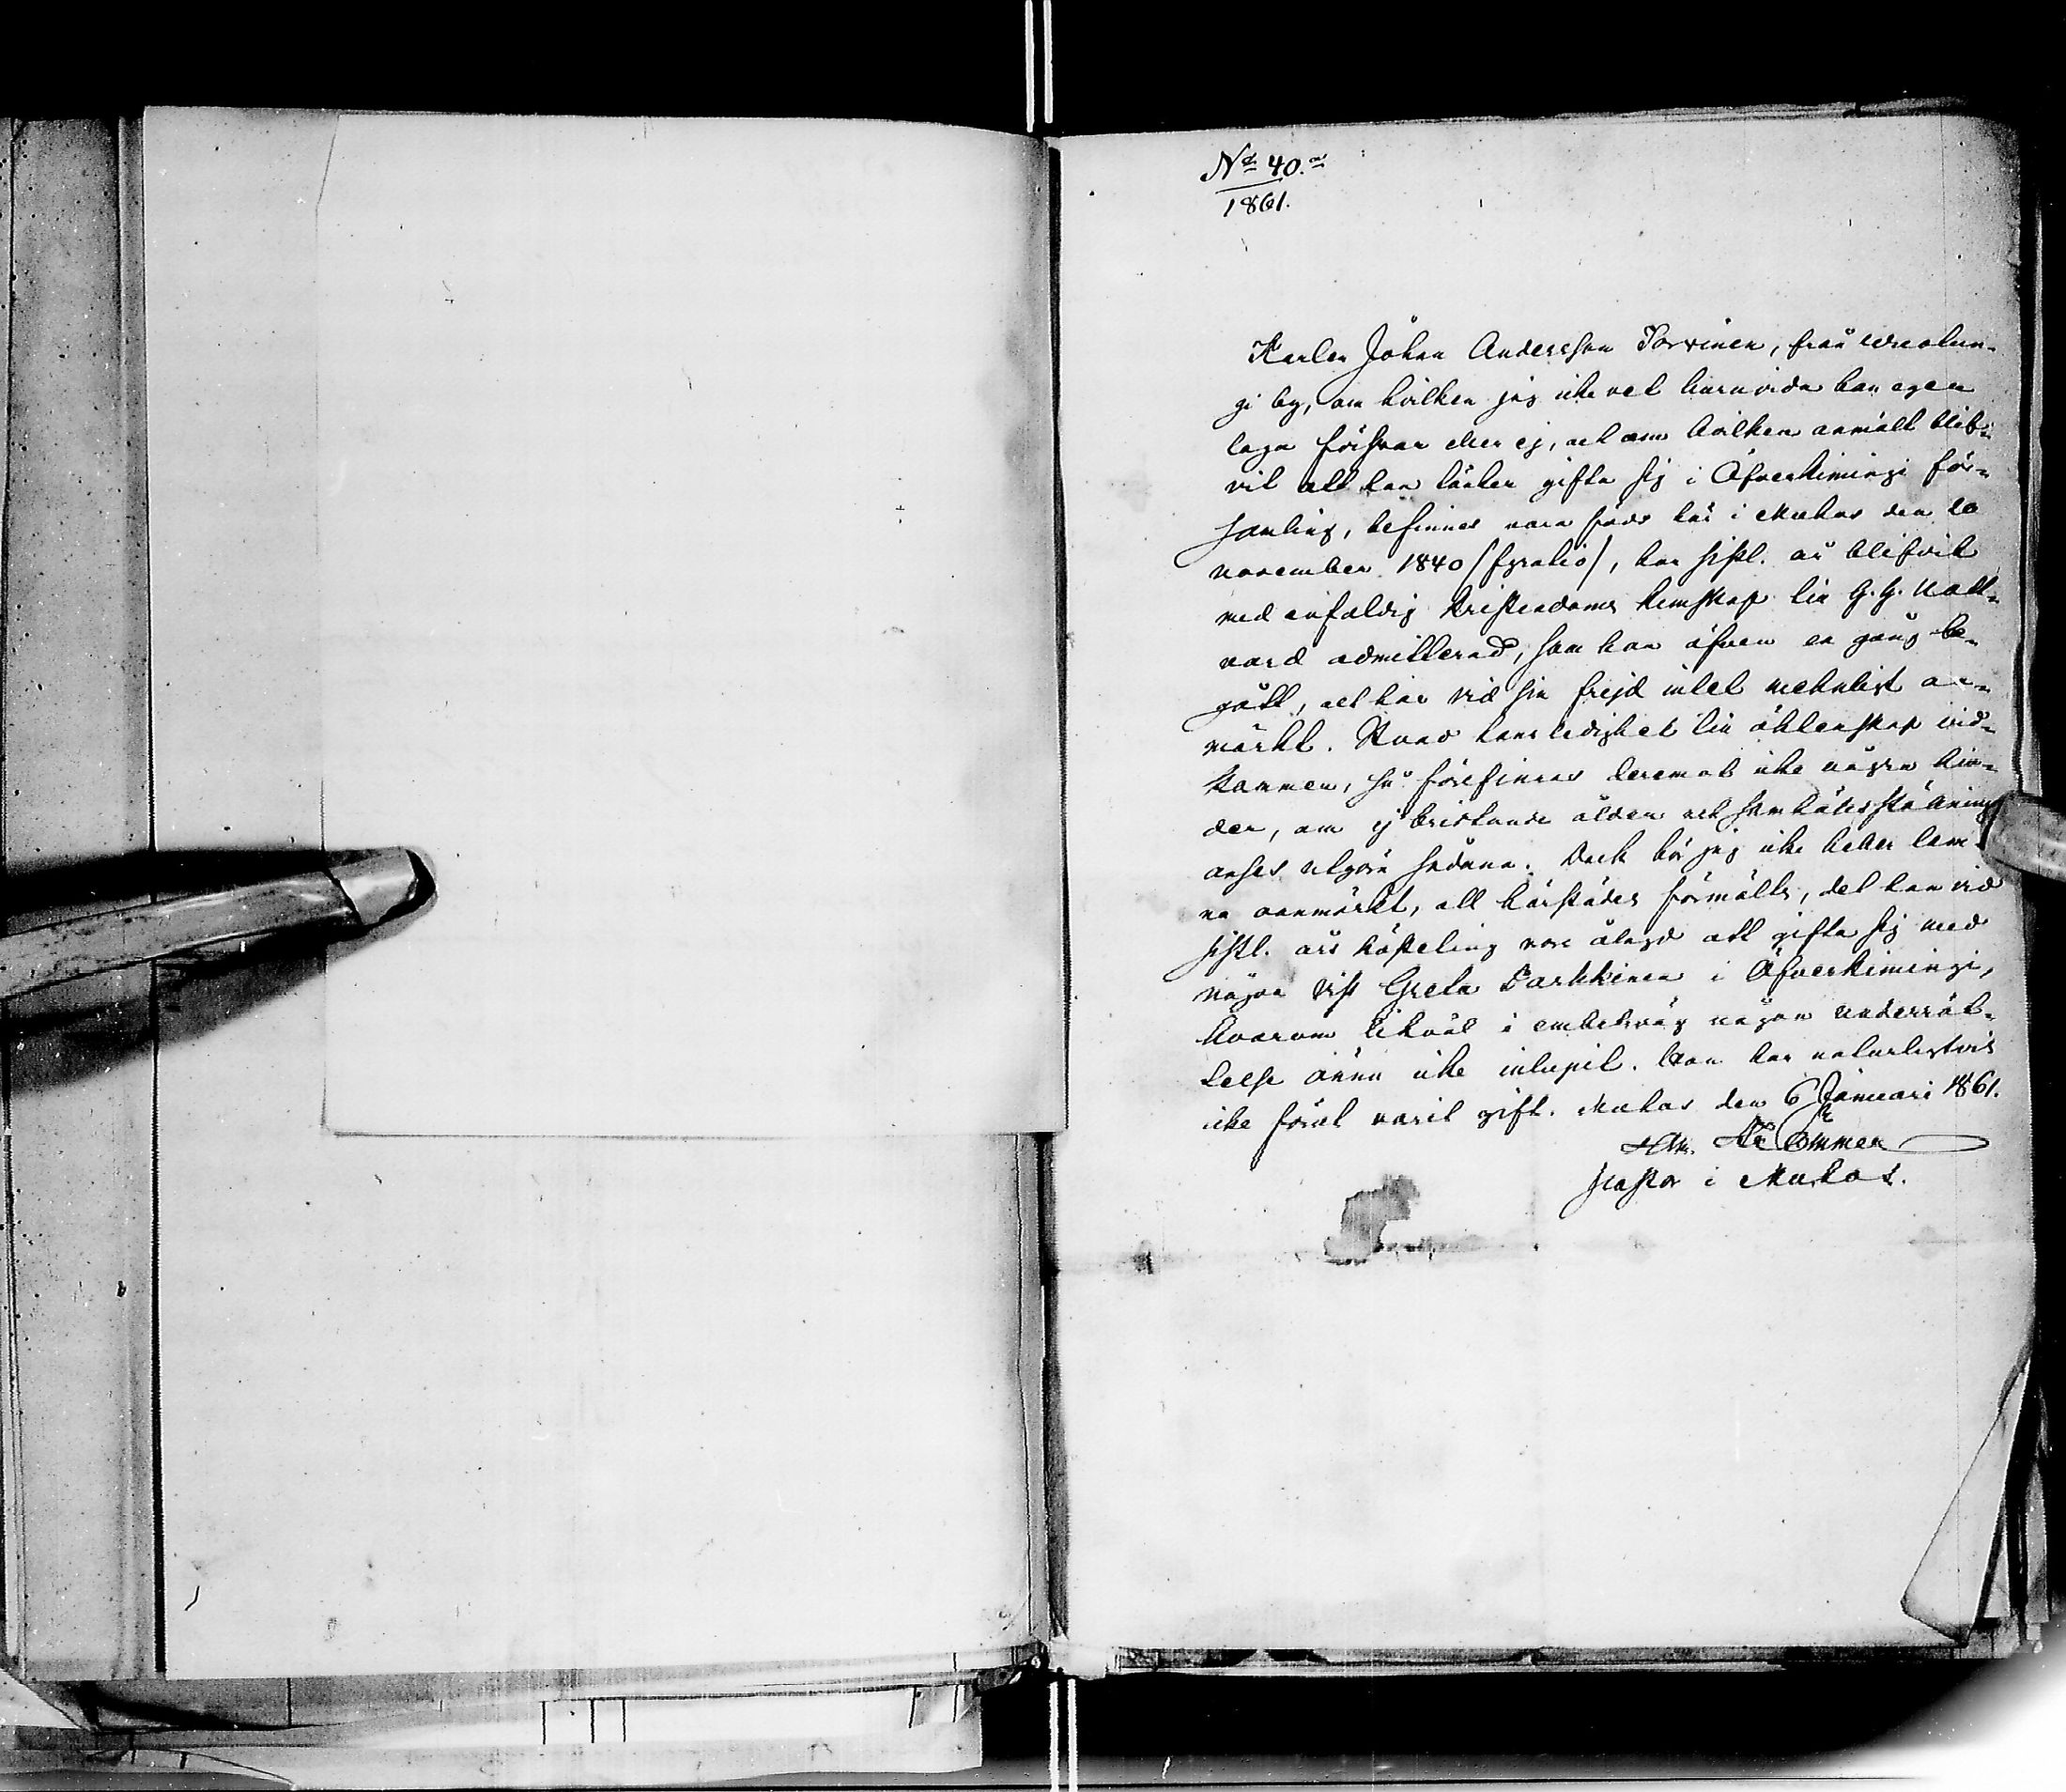 No 40.
1861.
Karlen Johan Andersson Torvinen, från
gi by, om hvilken jag icke vet huruvida han egen
laga försvar eller ej, och om hvilken anmält blif-
vit att han tänker gifta sig i Öfverkimingi för-
samling, befinnes vara född här i Muhos den 20
november 1840 (fyratio), har sistl. år blifvit
med enfaldig kristendoms kunskap till H. H. Natt-
vard admitterad, som han äfven en gång be-
gått, och har vid sin frejd intet menligt an-
märkt. Hvad hans ledighet till äktenskap vid-
kommer, så förefinnes deremot icke några hin-
der, om ej bristande ålder och samhällsställning
anses utgöra sådana. Dock bör jag icke heller lem-
na oanmärkt, att härstädes förmäles, det han vid
sistl. års hösteting vore ålagd att gifta sig med
någon viss Greta Karkkinen i Öfverkimingi,
hvarom likväl i embetsväg någon underrät-
telse ännu icke inlupit. Han har naturligtvis
icke förut varit gift. Muhos den 6 Januari 1861.
Pastor i Muhos.